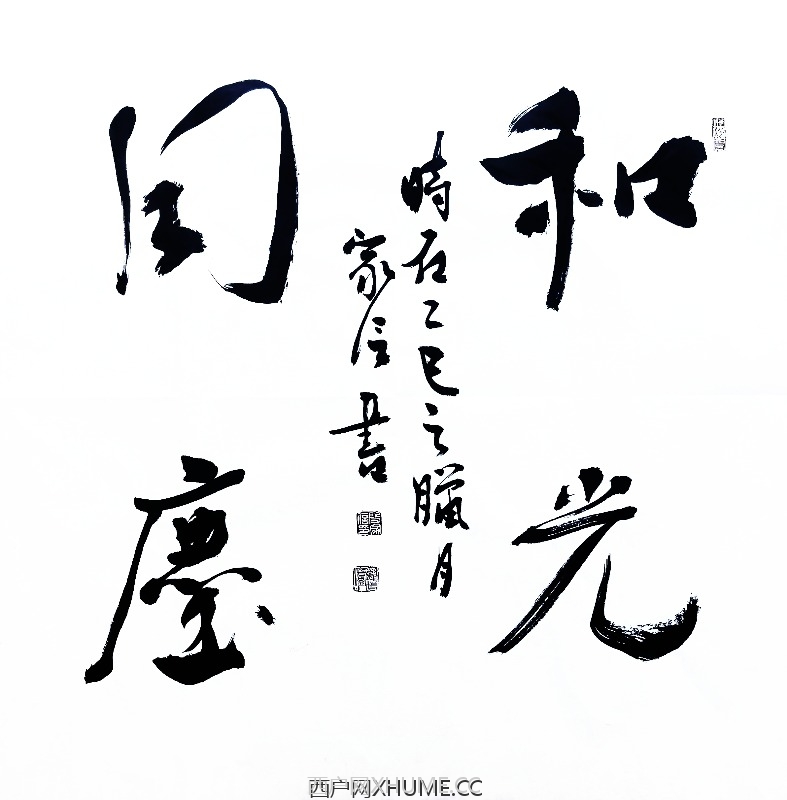 和光
同塵
時在乙巳之臘月
家信書
西户网XHUME.CC